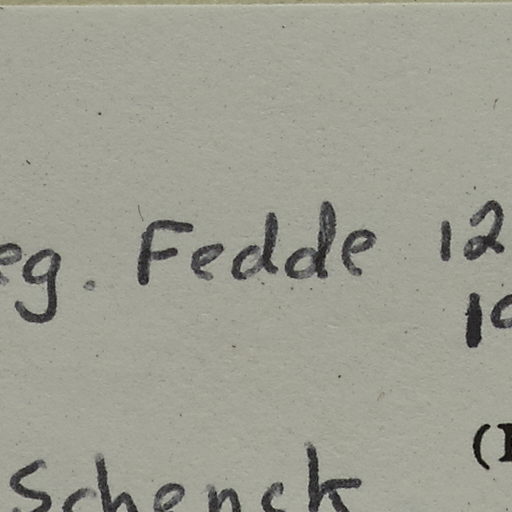 eg. Fedde 12
10
(I
Schenck